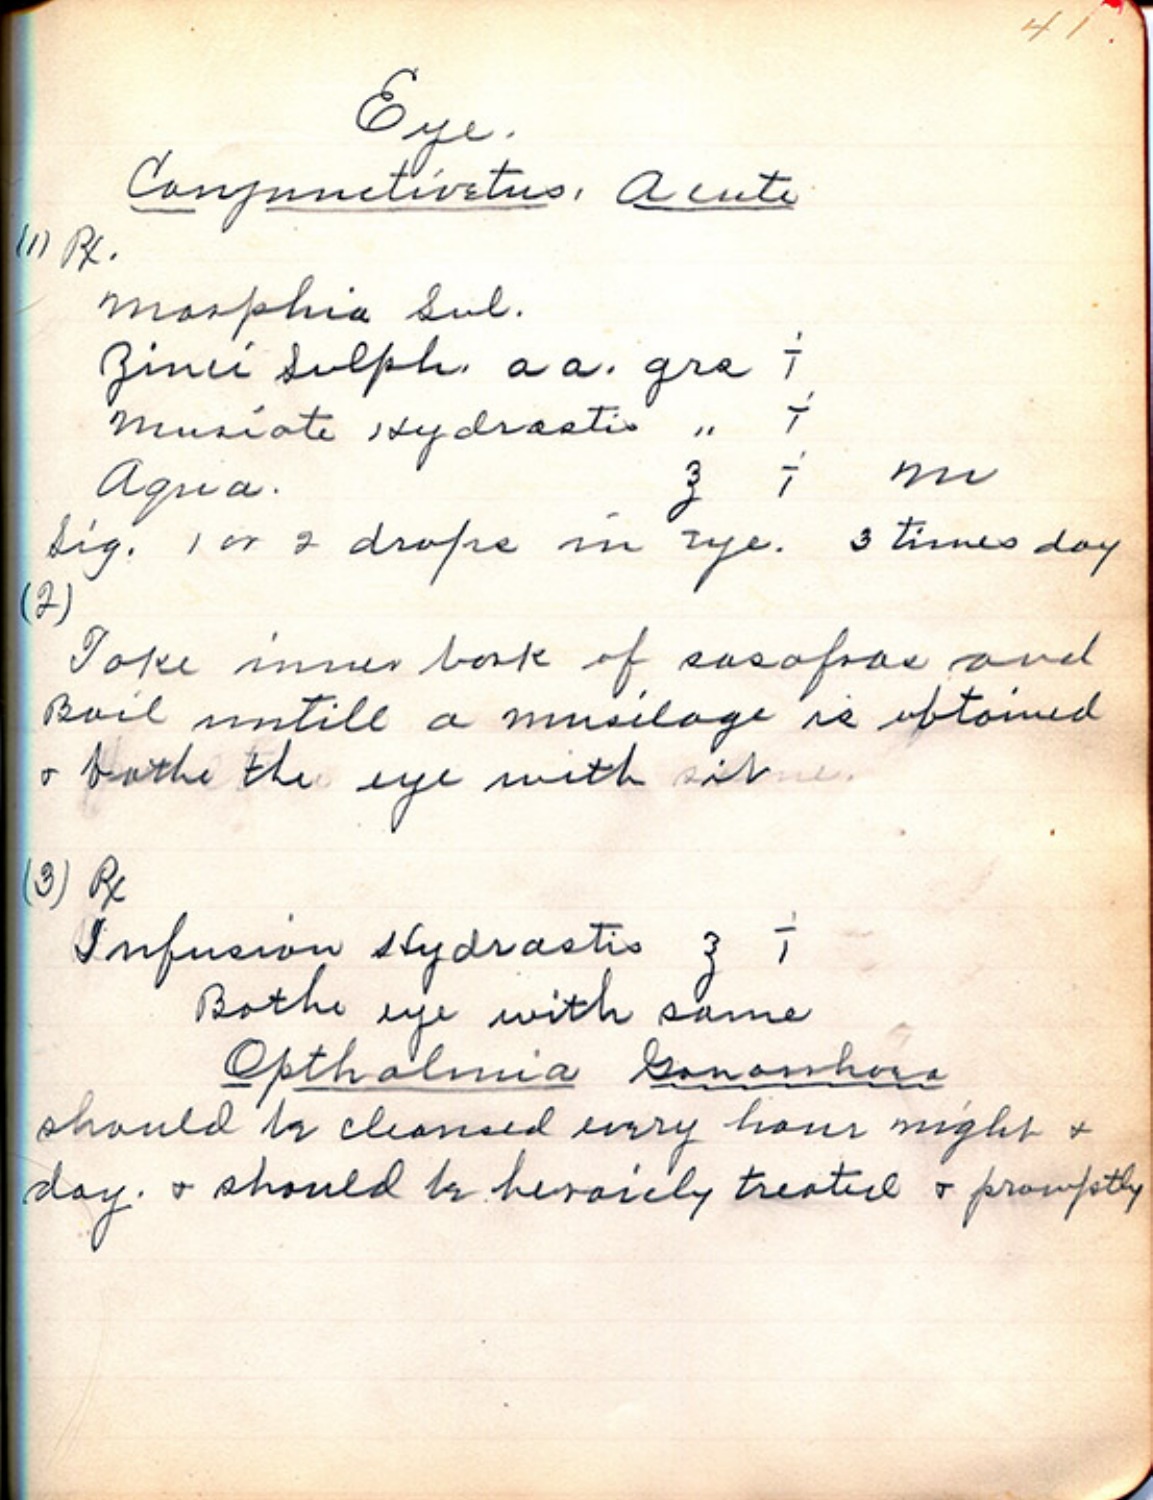 41
Eye.
Conjunctivetus. Acute
(1) Rx.
Morphia Sul.
Zinci Sulph. aa. grs i
Muriate Hydrastis " i
Aqua. ℥ i m
Sig. 1 or 2 drops in eye. 3 times day
(2)
Take inner bark of sasafras and
Boil untill a musilage is obtained
& bathe the eye with it
(3) Rx
Infusion Hydrastis ℥ i
Bathe eye with same
Opthalmia Gonorrhora
should be cleansed every hour night &
day. & should be heroicly treated & promptly